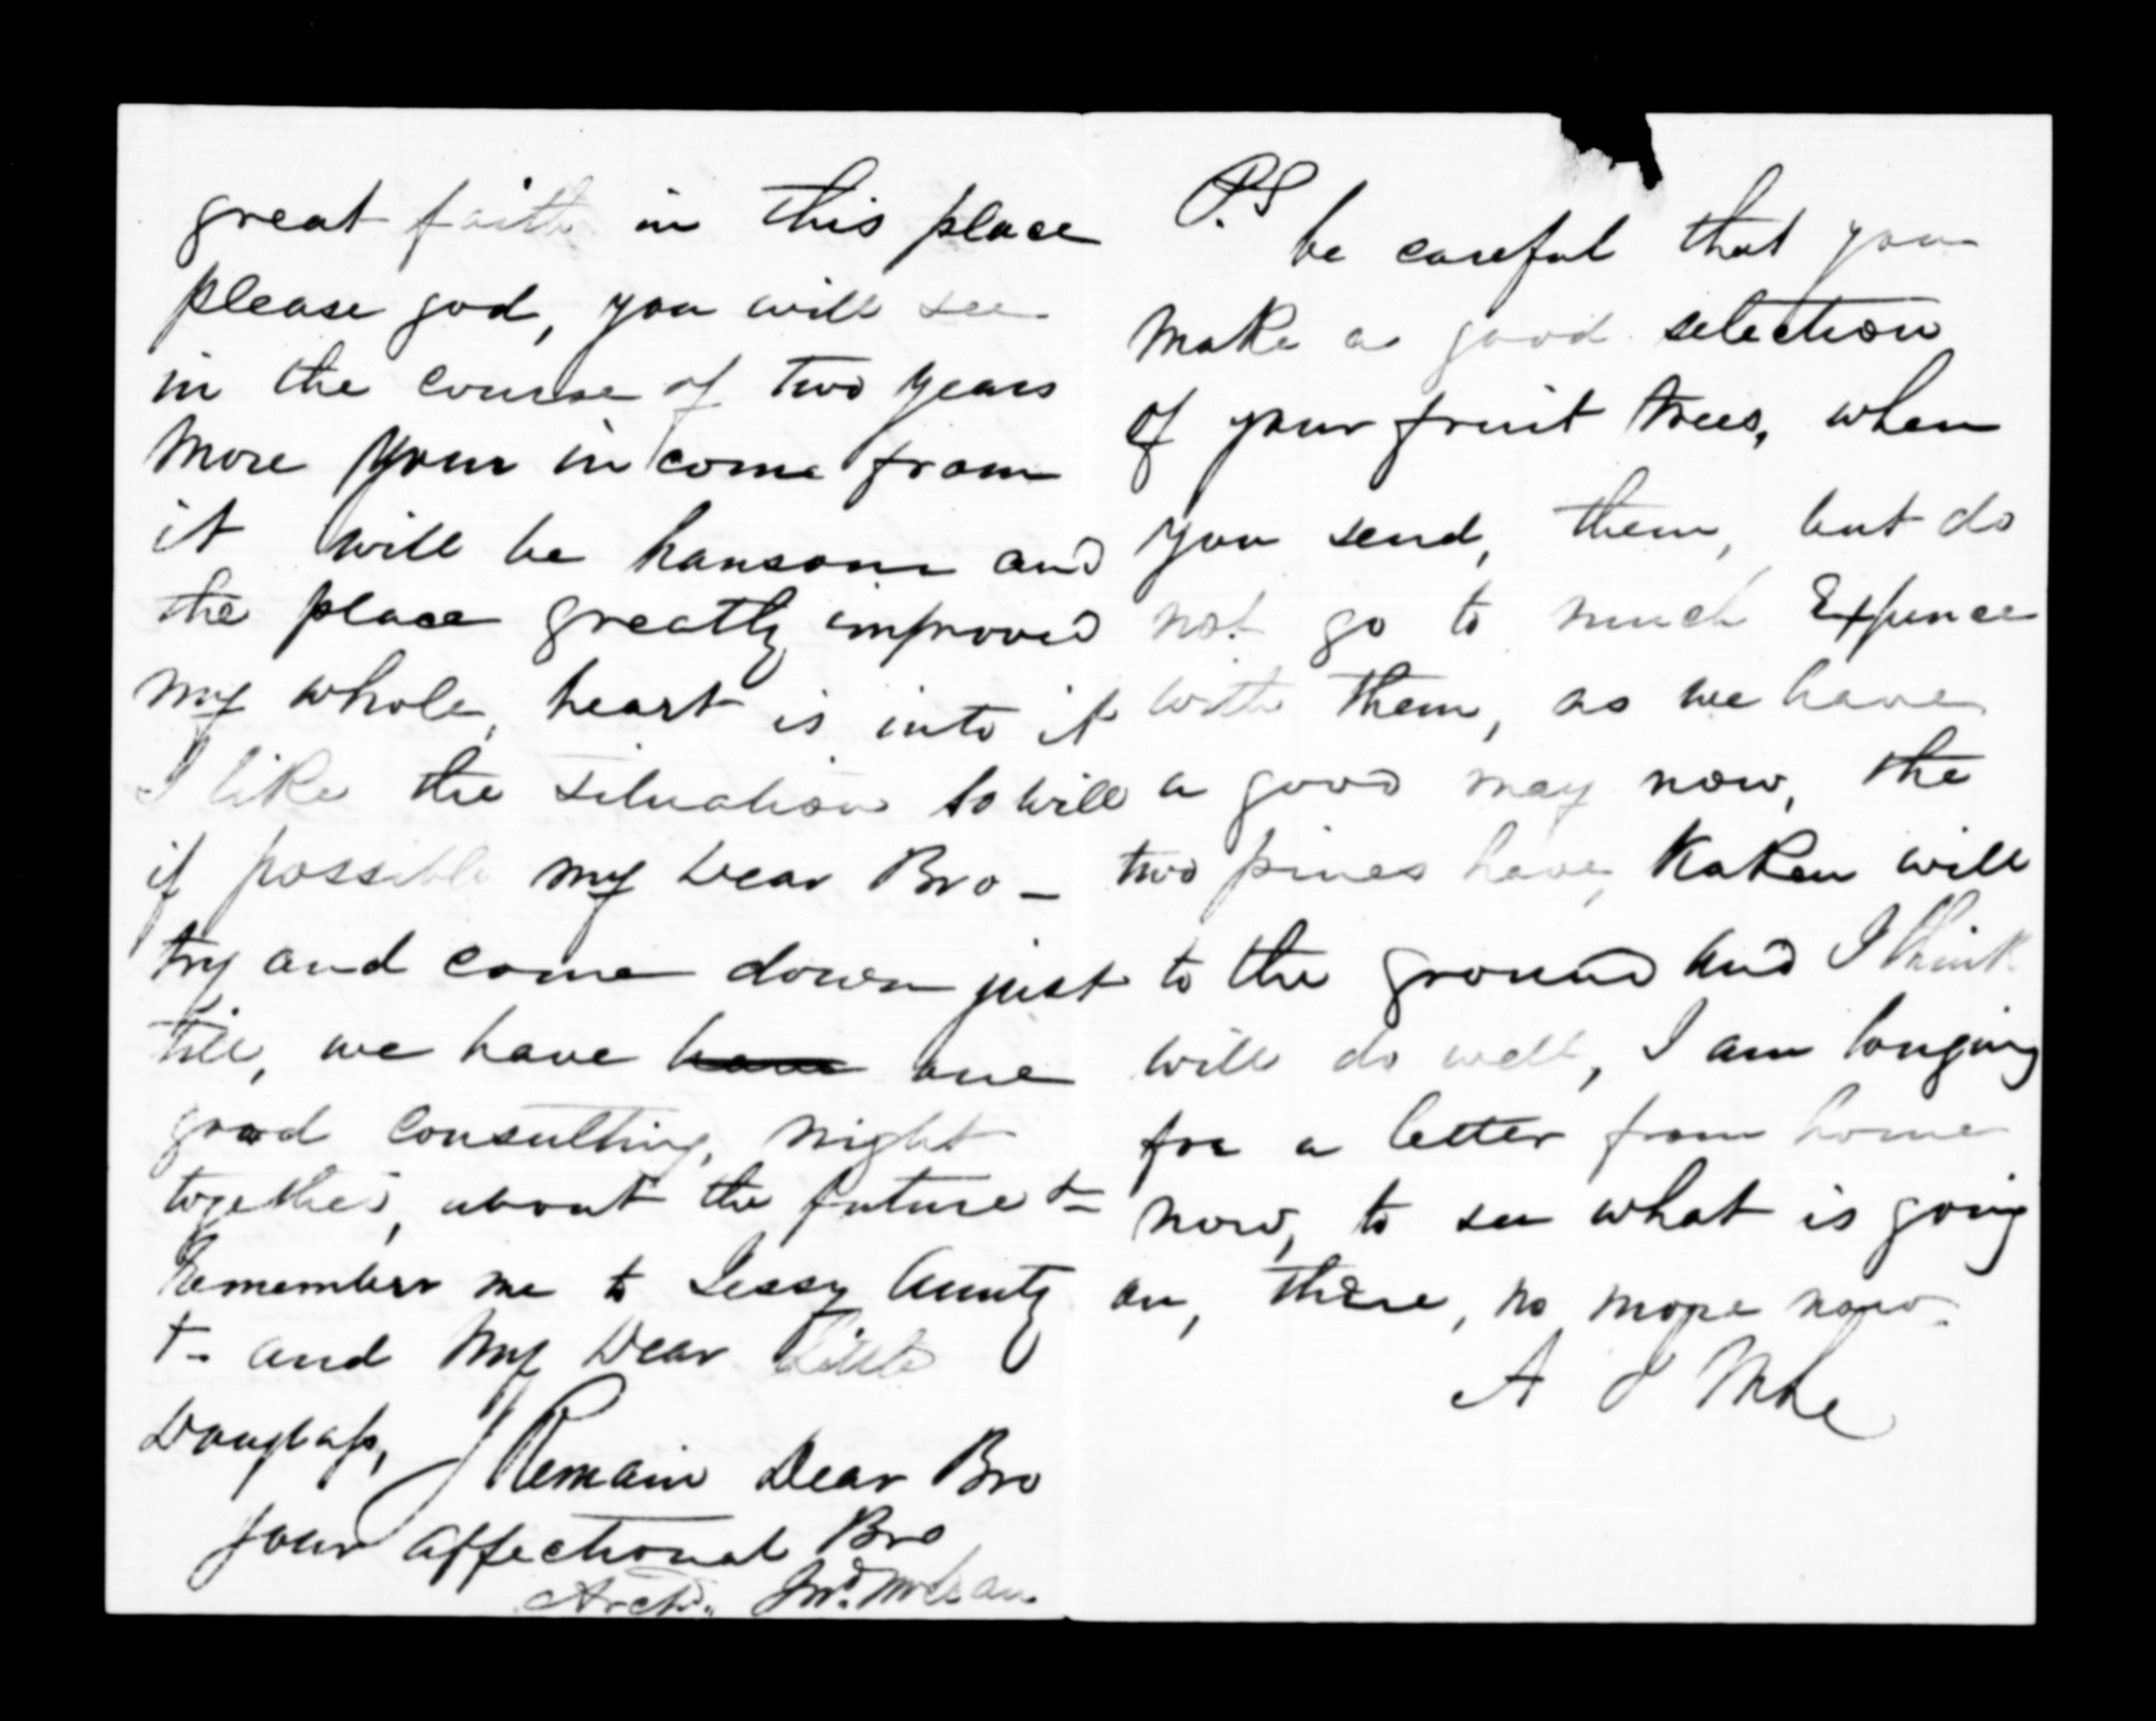 great faith in this place
please god, you will see
in the course of two years
more your in come from
it will be hansom and
the place greatly improved
my whole, heart is into it
I like the situation so well
if possible my Dear Bro —
try and come down just
till, we have have one
good consulting, night
together, about the future &
Remember me to Jessy Aunty
& - and My Dear little
Douglass, I Remain Dear Bro
your affectionat Bro
Archd. Jno. McLean.
P.S
be careful that you
make a good selection
of your fruit trees, when
you send, them, but do
not go to much Expence
with them, as we have
a good may now, the
two pines have, taken will
to the ground and I think
will do well, I am longing
for a letter from home
now, to see what is going
on, there, no more now.
A J McLe